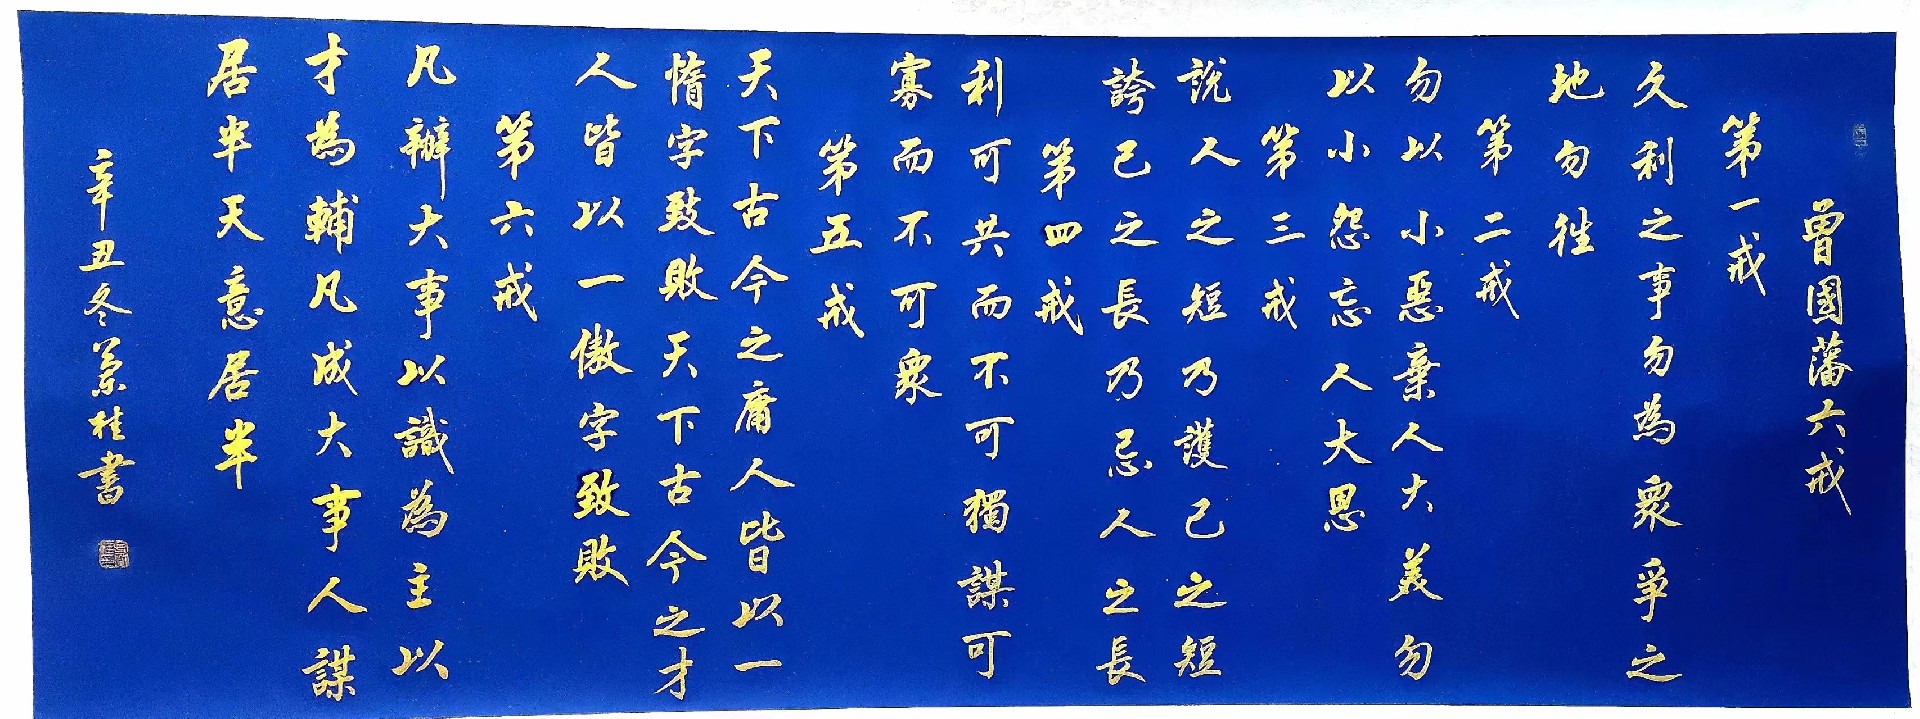 曾國藩六戒
第一戒
久利之事勿為衆爭之
地勿徃
第二戒
勿以小惡棄人大美勿
以小怨忘人大恩
第三戒
説人之短乃護己之短
誇己之長乃忌人之長
第四戒
利可共而不可獨謀可
寡而不可衆
第五戒
天下古今之庸人皆以一
惰字致敗天下古今之才
人皆以一傲字致敗
第六戒
凡辦大事以識為主以
才為輔凡成大事人謀
居半天意居半
辛丑冬桂書